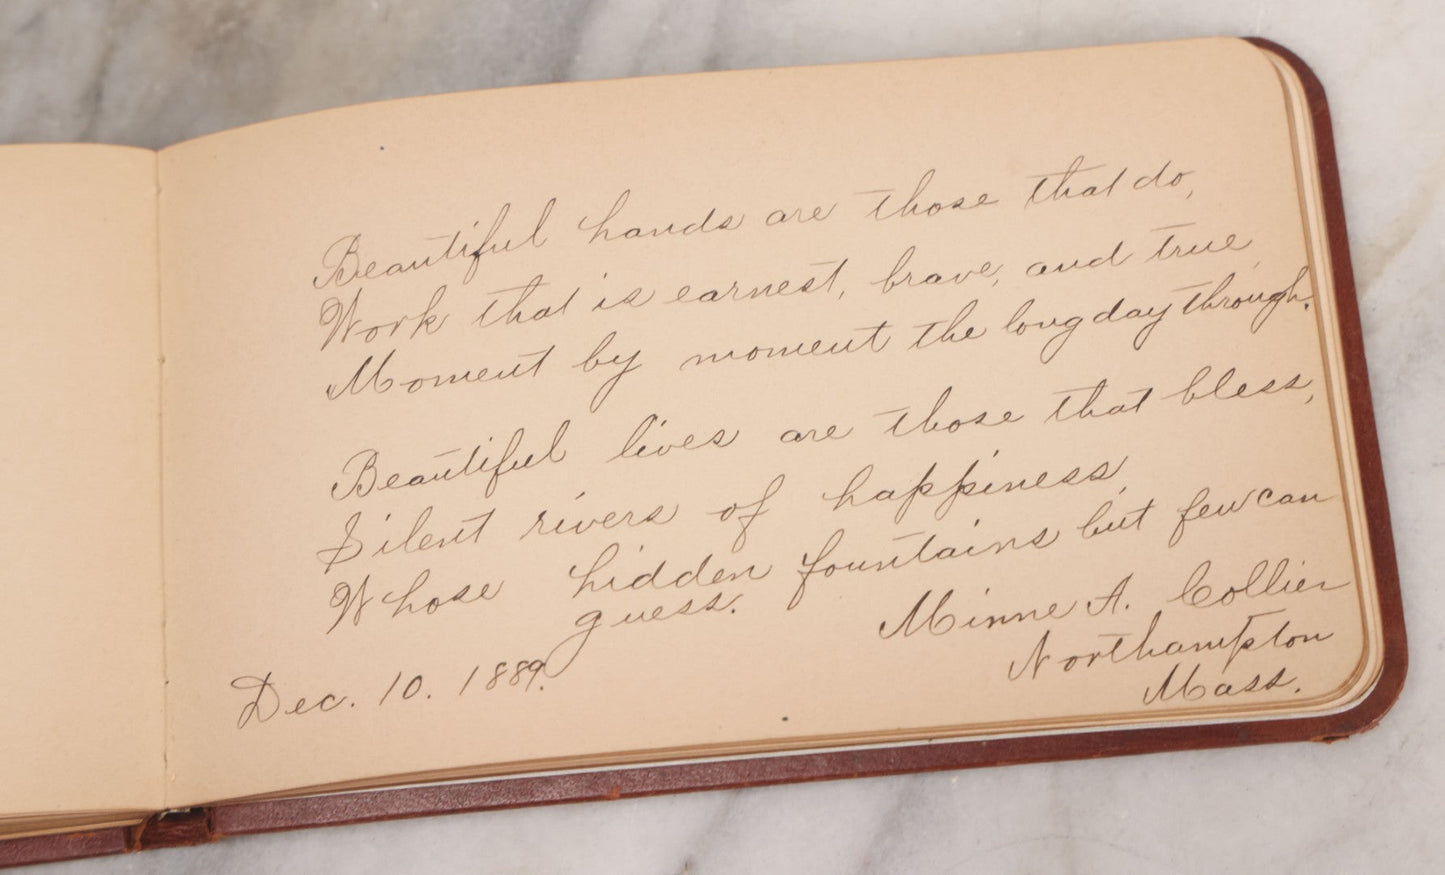 Beautiful hands are those that do,
Work that is earnest, brave, and true,
Moment by moment the long day through.
Beautiful lives are those that bless,
Silent rivers of happiness,
Whose hidden fountains but few can
guess.
Minne A. Collier
Northampton
Mass.
Dec. 10. 1889.